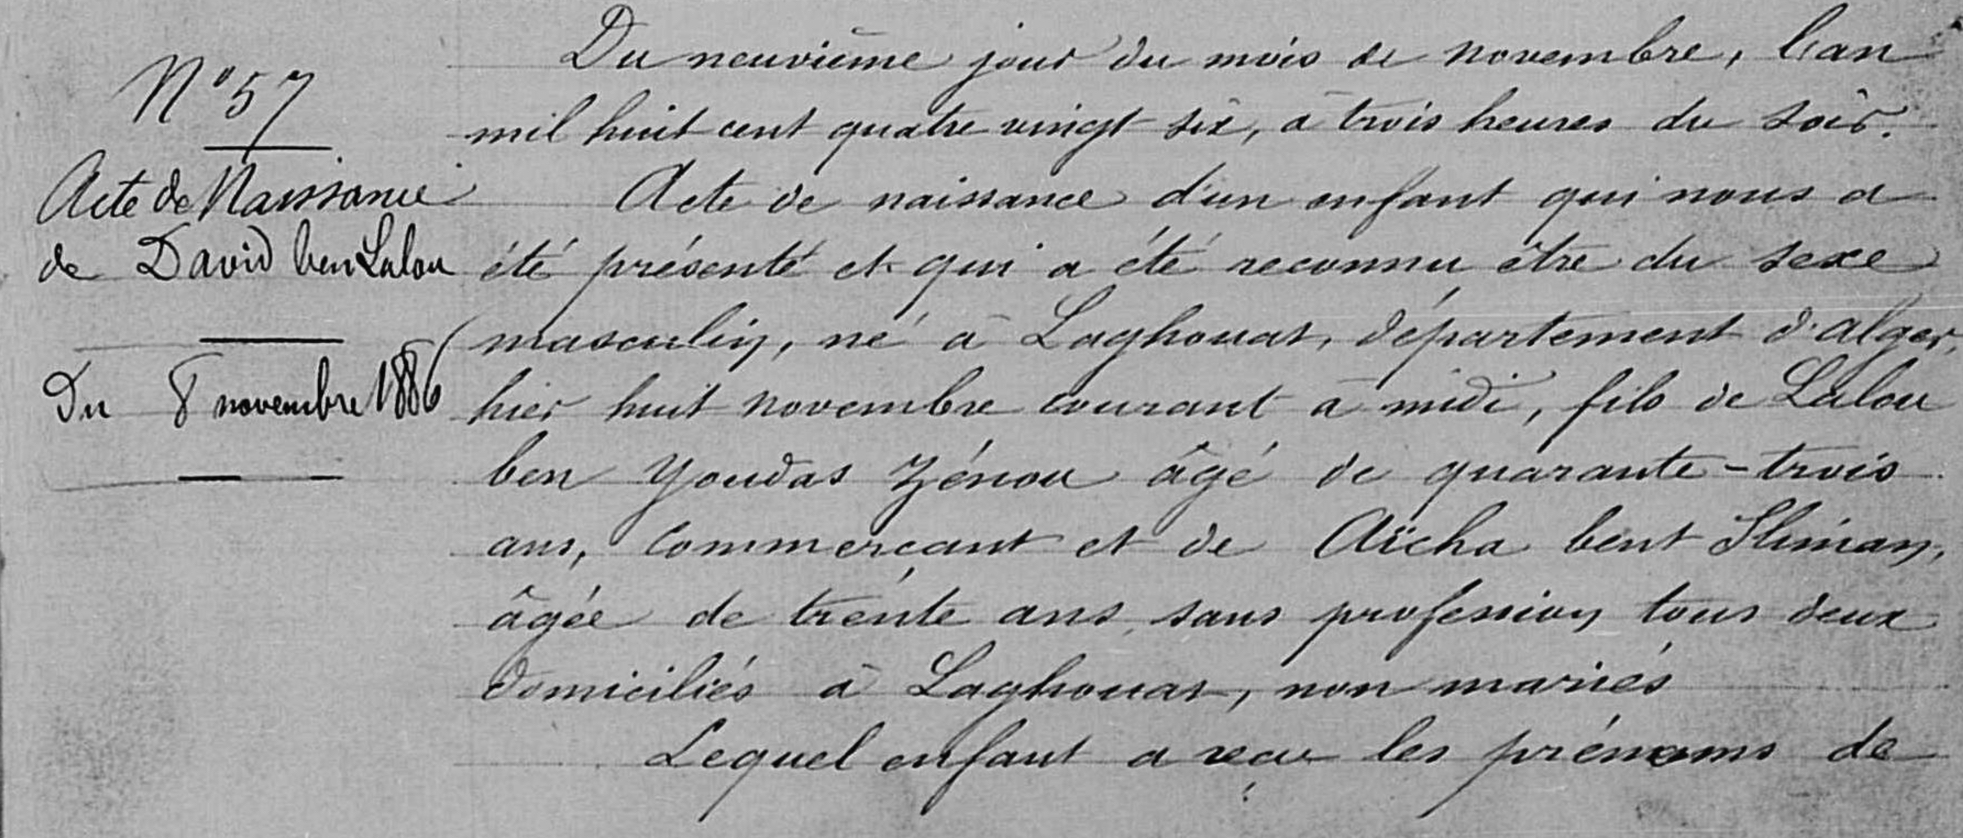 N° 57
Acte de Naissance
de David ben Lalou
Du 8 novembre 1886
Du neuvième jour du mois de novembre, l'an
mil huit cent quatre vingt six, à trois heures du soir.
Acte de naissance d'un enfant qui nous a
été présenté et qui a été reconnu être du sexe
masculin, né à Laghouat, département d'alger,
hier huit novembre courant à midi, fils de Lalou
ben Youdas Zénou âgé de quarante-trois
ans, commerçant et de Aïcha bent Sliman,
âgée de trente ans, sans profession tous deux
domiciliés à Laghouat, non mariés
Lequel enfant a reçu les prénoms de